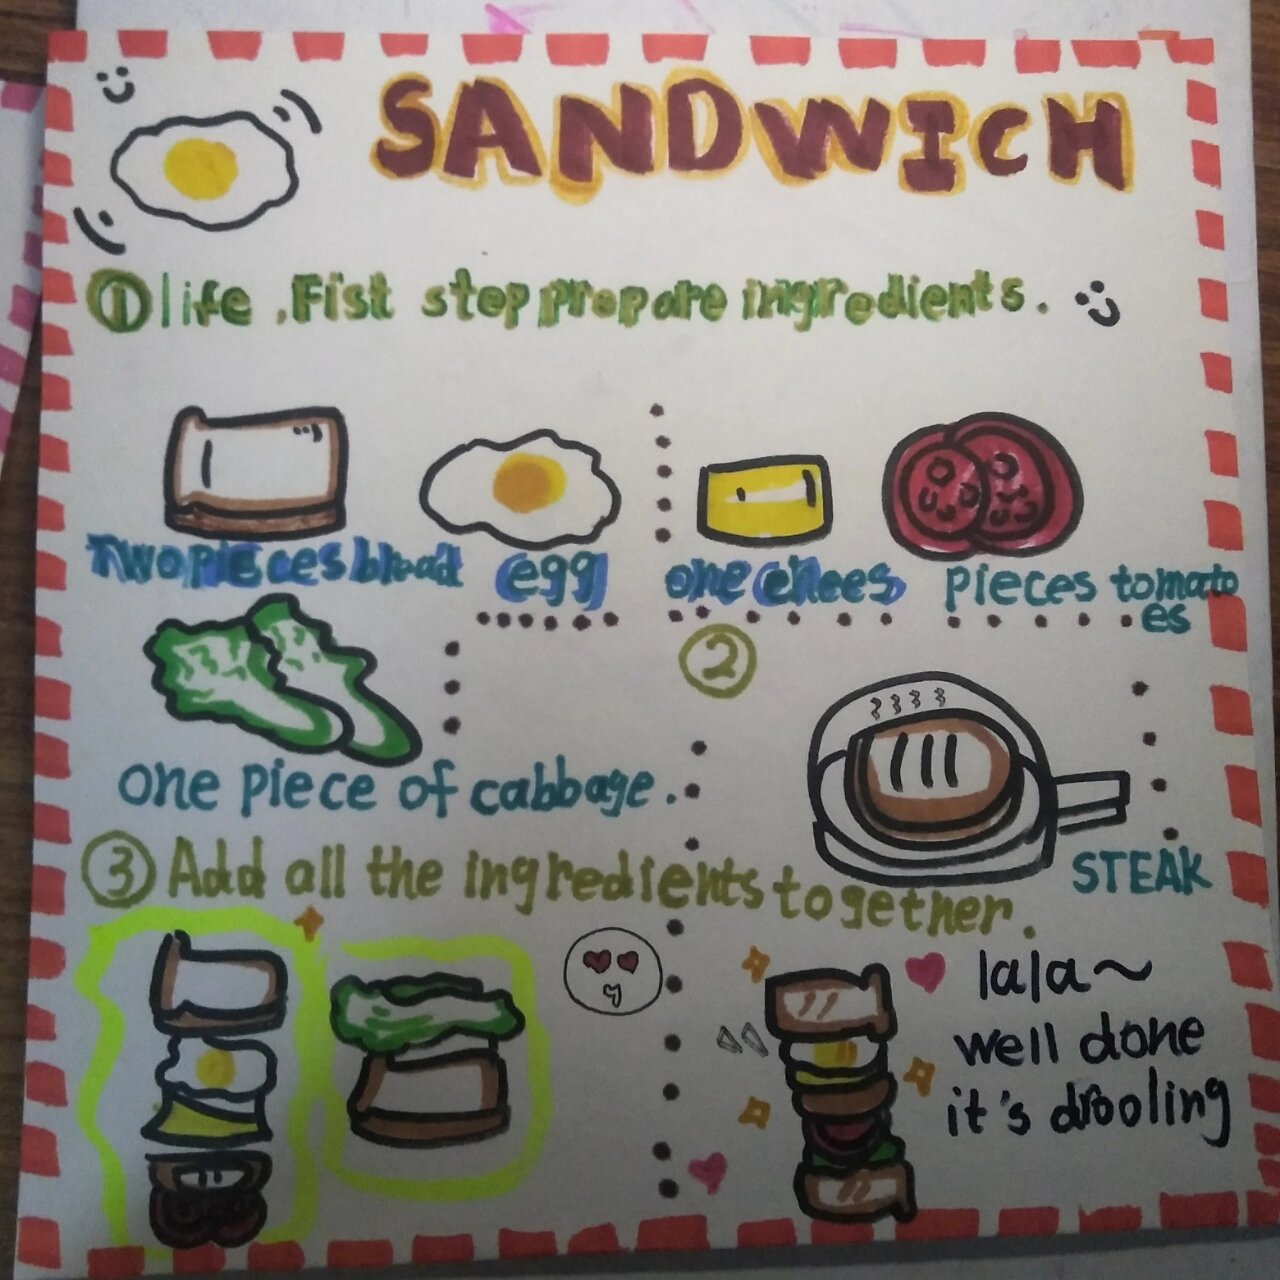 SANDWICH
① life . Fist step prepare ingredients.
Two pieces bread
egg
one chees
pieces tomato
es
one piece of cabbage.
②
STEAK
③ Add all the ingredients together.
lala~
well done
it's drooling